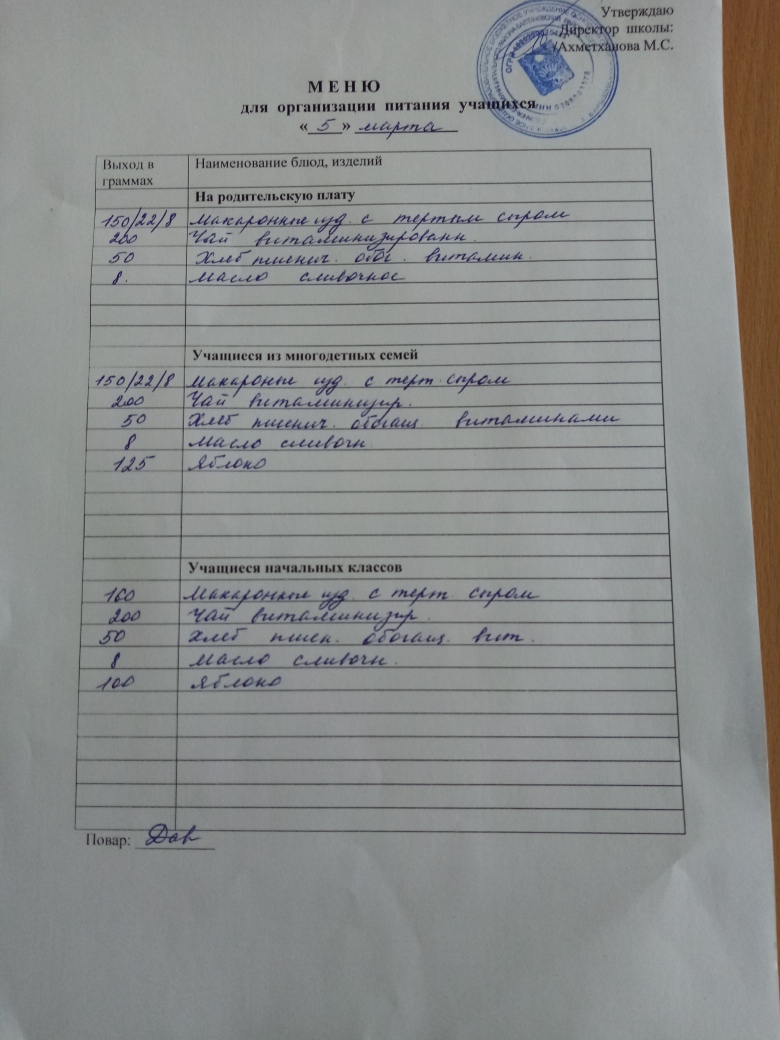 Утверждаю
Директор школы:
/Ахметханова М.С.
МЕНЮ
для организации питания учащихся
« 5 » марта
Выход в граммах Наименование блюд, изделий
На родительскую плату
150/22/8 Макаронные изд. с тертым сыром
200 Чай витаминизированн.
50 Хлеб пшенич. обог. витамин.
8. Масло сливочное
Учащиеся из многодетных семей
150/22/8 Макаронные изд. с терт. сыром
200 Чай витаминизир.
50 Хлеб пшенич. обогащ. витаминами
8 Масло сливочн.
125 Яблоко
Учащиеся начальных классов
160 Макаронные изд. с терт. сыром
200 Чай витаминизир.
50 Хлеб пшен. обогащ. вит.
8 Масло сливочн.
100 Яблоко
Повар: